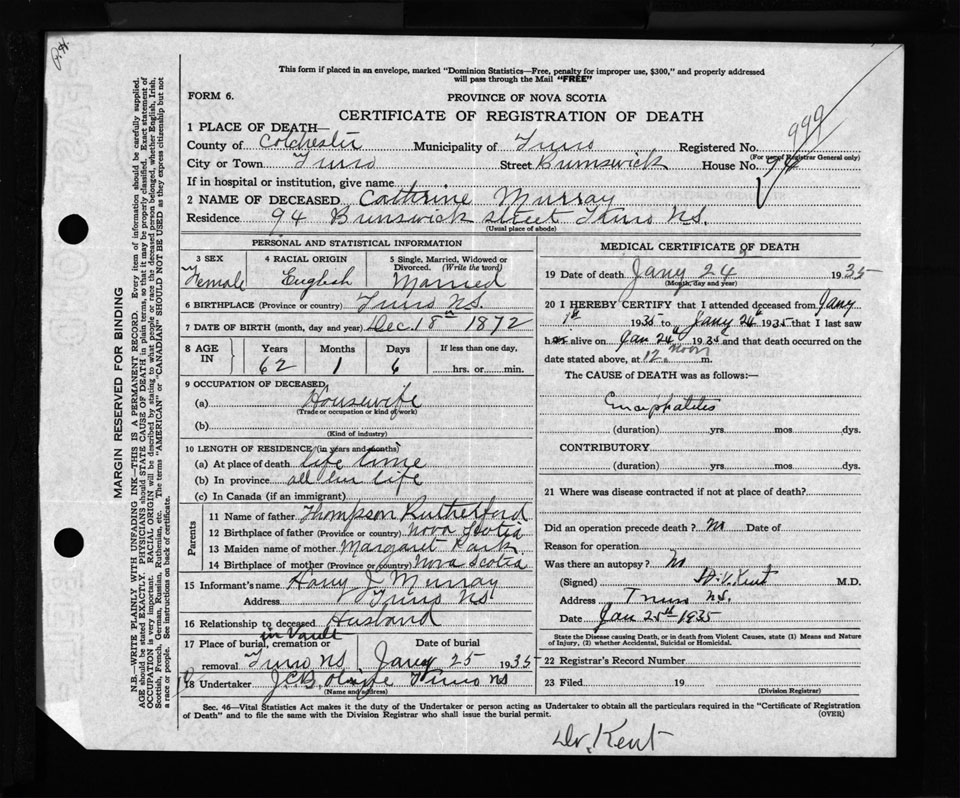 This form if placed in an envelope, marked "Dominion Statistics—Free, penalty for improper use, $300," and properly addressed
will pass through the Mail "FREE"
FORM 6.
PROVINCE OF NOVA SCOTIA
CERTIFICATE OF REGISTRATION OF DEATH
999
1 PLACE OF DEATH—
County of Colchester Municipality of Truro Registered No.
(For use of Registrar General only)
City or Town Truro Street Brunswick House No. 94
If in hospital or institution, give name
2 NAME OF DECEASED Cathrine Murray
Residence 94 Brunswick Street Truro N.S.
(Usual place of abode)
PERSONAL AND STATISTICAL INFORMATION
3 SEX 4 RACIAL ORIGIN 5 Single, Married, Widowed or Divorced. (Write the word)
Female English Married
6 BIRTHPLACE (Province or country) Truro N.S.
7 DATE OF BIRTH (month, day and year) Dec. 18th 1872
8 AGE IN Years Months Days If less than one day.
62 1 6 hrs. or min.
9 OCCUPATION OF DECEASED
(a) Housewife
(Trade or occupation or kind of work)
(b)
(Kind of industry)
10 LENGTH OF RESIDENCE (in years and months)
(a) At place of death life time
(b) In province all her life
(c) In Canada (if an immigrant)
Parents
11 Name of father Thompson Rutherford
12 Birthplace of father (Province or country) Nova Scotia
13 Maiden name of mother Margaret Park
14 Birthplace of mother (Province or country) Nova Scotia
15 Informant's name Harry J Murray
Address Truro NS
16 Relationship to deceased Husband
in Vault
17 Place of burial, cremation or Date of burial
removal Truro NS Jany 25 1935
18 Undertaker J.C.B. Truro NS
(Name and address)
MEDICAL CERTIFICATE OF DEATH
19 Date of death Jany 24 1935
(Month, day and year)
20 I HEREBY CERTIFY that I attended deceased from Jany
1st 1935 to Jany 24th 1935 that I last saw
her alive on Jan 24th 1935 and that death occurred on the
date stated above, at 12 noon m.
The CAUSE of DEATH was as follows:—
Encephalitis
(duration) yrs. mos. dys.
CONTRIBUTORY
(duration) yrs. mos. dys.
21 Where was disease contracted if not at place of death?
Did an operation precede death? No Date of
Reason for operation
Was there an autopsy? No
(Signed) H.V. Kent M.D.
Address Truro N.S.
Date Jan 25th 1935
State the Disease causing Death, or in death from Violent Causes, state (1) Means and Nature
of Injury, (2) whether Accidental, Suicidal or Homicidal.
22 Registrar's Record Number
23 Filed 19
(Division Registrar)
Sec. 46—Vital Statistics Act makes it the duty of the Undertaker or person acting as Undertaker to obtain all the particulars required in the "Certificate of Registration
of Death" and to file the same with the Division Registrar who shall issue the burial permit. (OVER)
Dr. Kent
MARGIN RESERVED FOR BINDING
N.B.—WRITE PLAINLY WITH UNFADING INK—THIS IS A PERMANENT RECORD. Every item of information should be carefully supplied.
AGE should be stated EXACTLY. PHYSICIANS should STATE CAUSE OF DEATH in plain terms, so that it may be properly classified. Exact statement of
OCCUPATION is very important. RACIAL ORIGIN will be described by stating to what people or race the deceased person belonged, whether English, Irish,
Scottish, French, German, Russian, Ruthenian, etc. The terms "AMERICAN" or "CANADIAN" SHOULD NOT BE USED as they express citizenship but not
a race or people. See instructions on back of certificate.